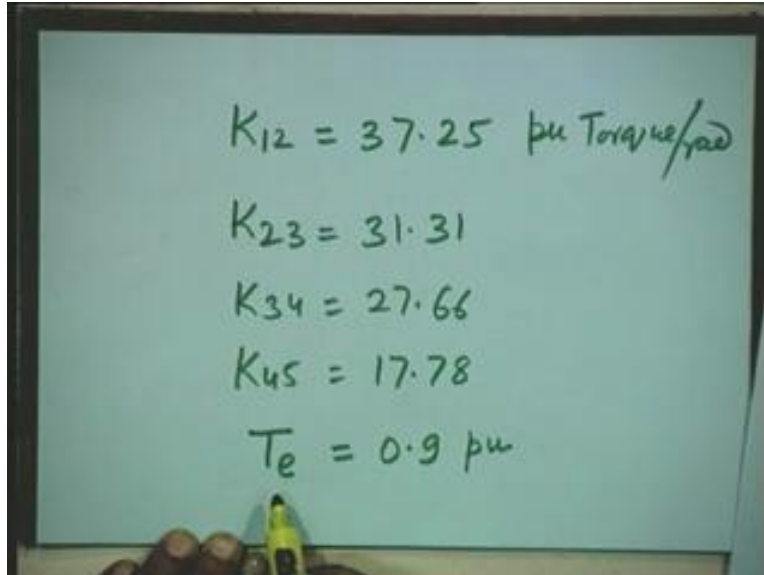 K12 = 37.25 pu Torque/rad
K23 = 31.31
K34 = 27.66
K45 = 17.78
Te = 0.9 pu